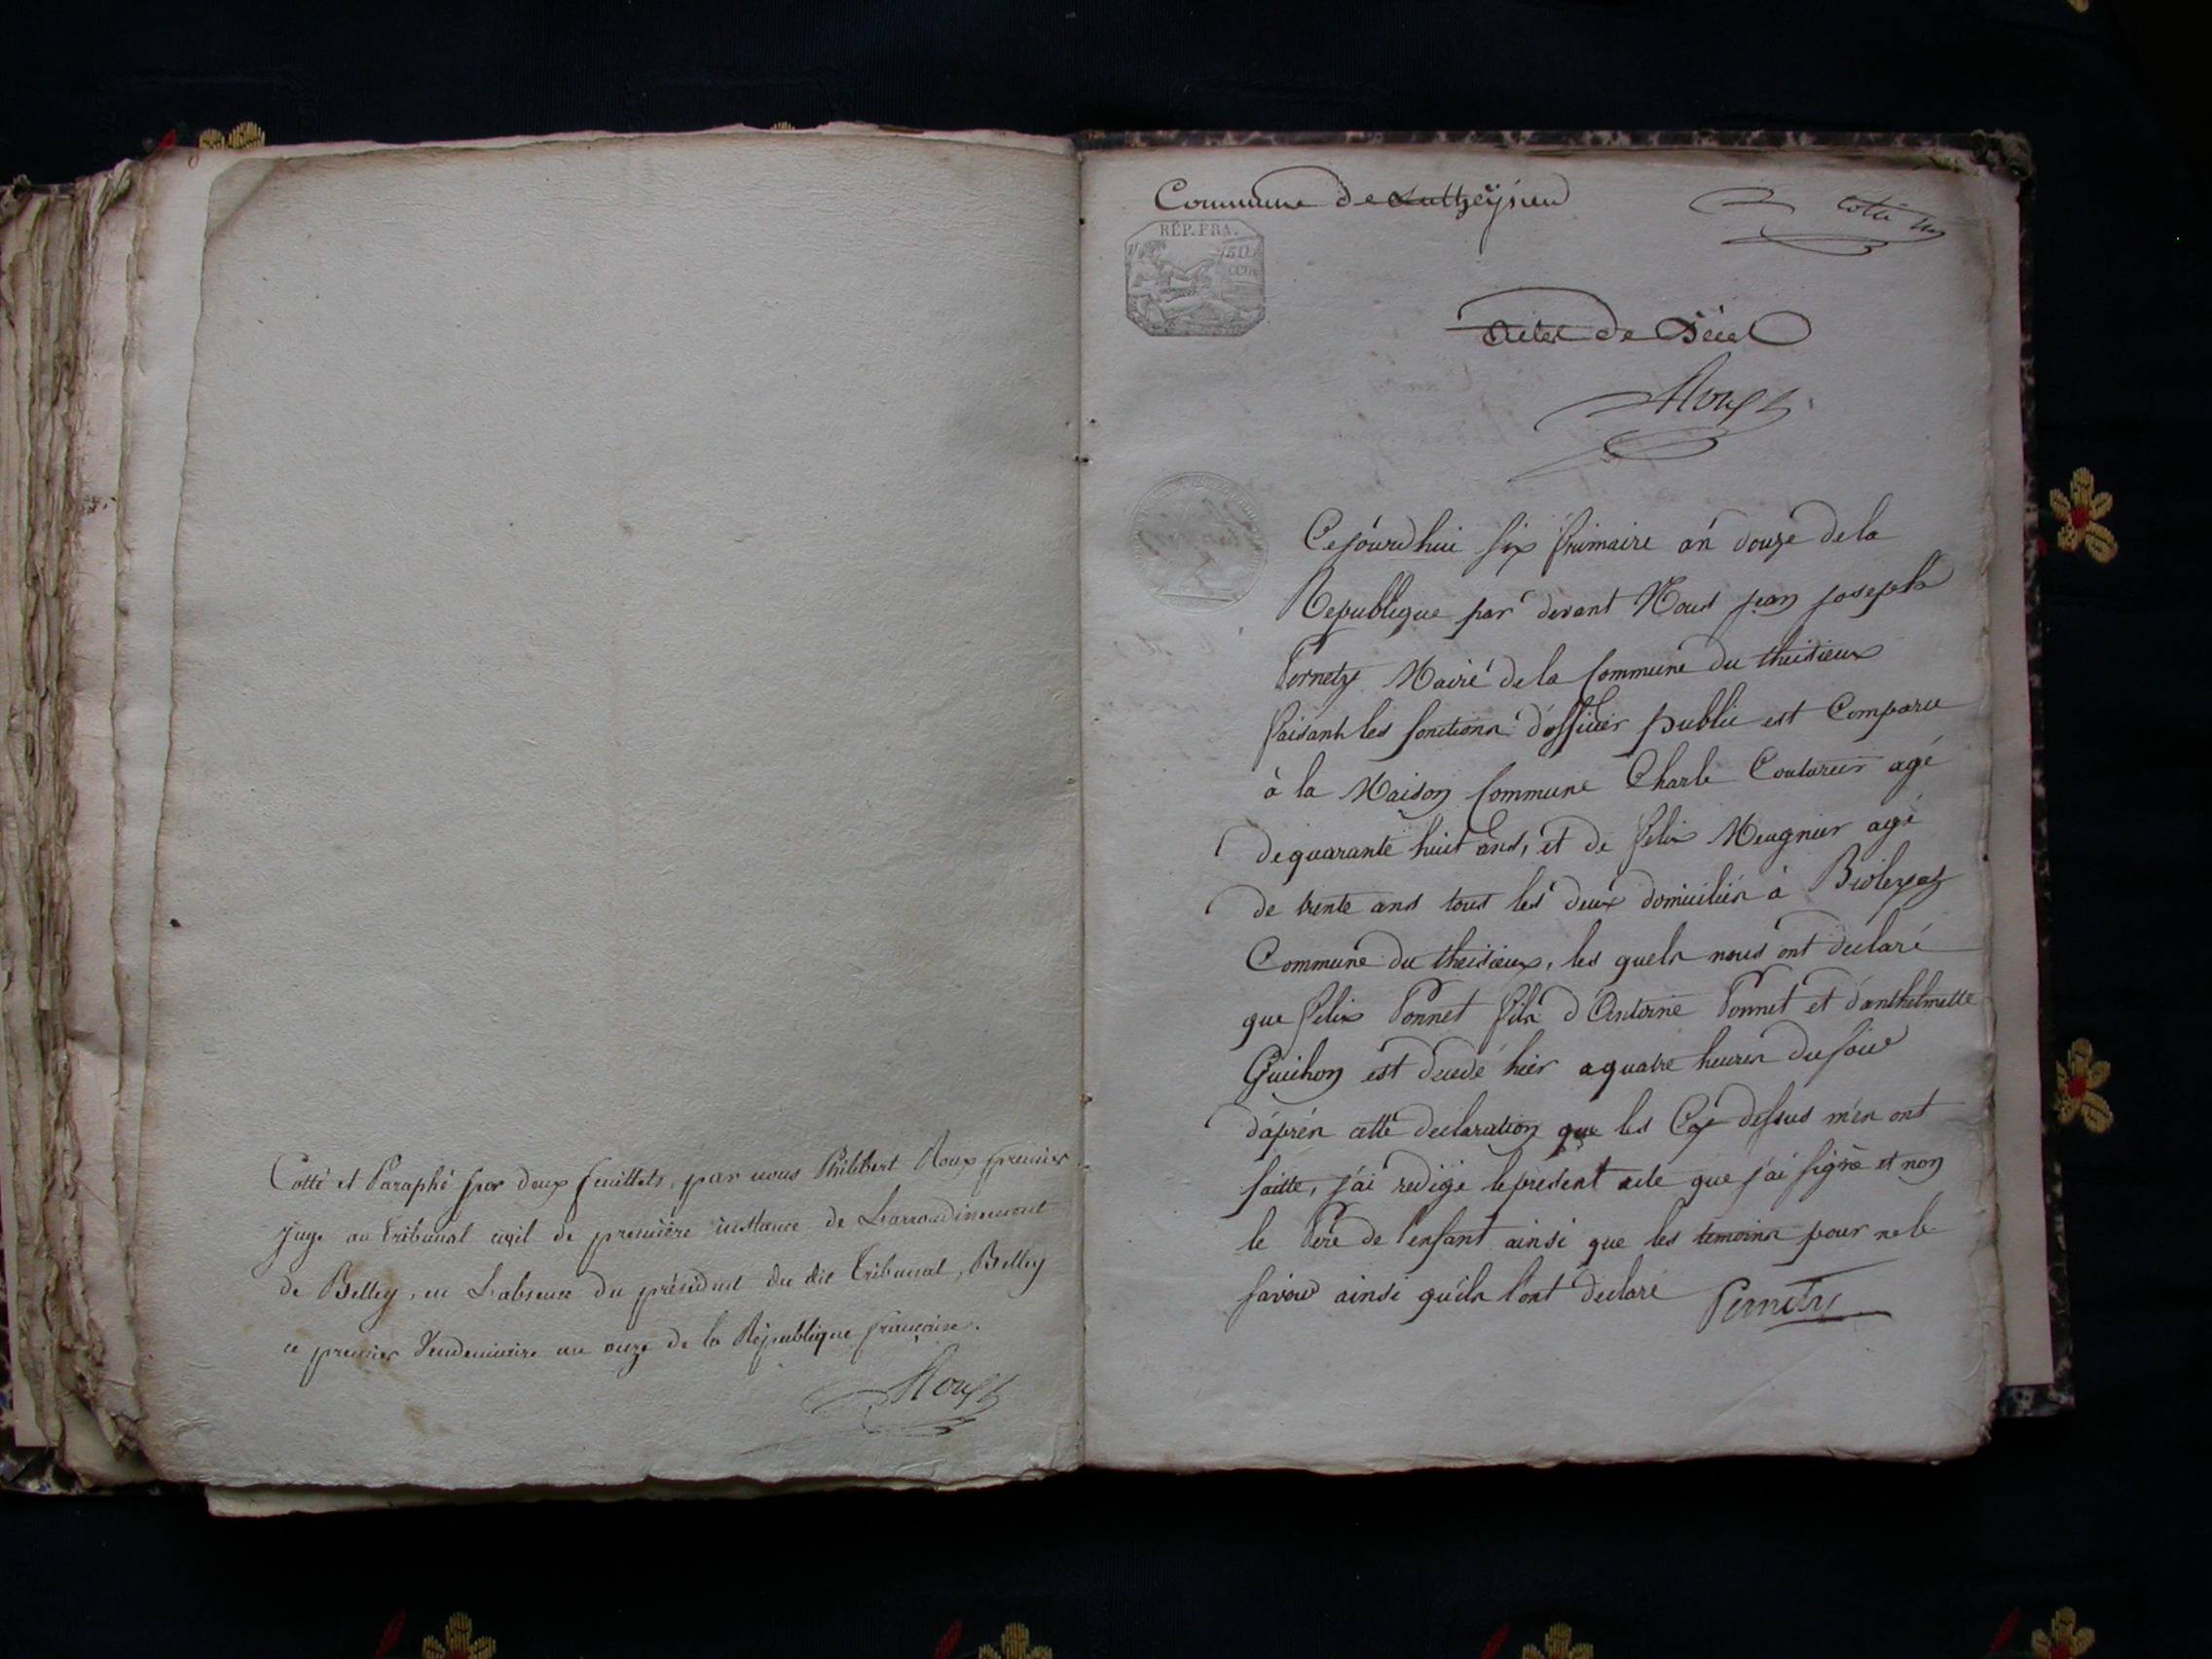 Cotté et Paraphé par deux feuillets, par nous Philibert Roux premier
juge au tribunal civil de première instance de Larrondissement
de Belley, en Labsence du président du dit tribunal, Belley
ce premier Vendemiaire an onze de la République française.
Roux
Commune de Luthzeÿsieu
cotté
RÉP. FRA.
50
CEN
Actes de Décès
Roux
Cejourdhui six frimaire an douze de la
Republique par devant Nous jean joseph
Pernety Maire de la Commune du theisieux
faisant les fonctions d'officier public est Comparu
à la Maison Commune Charle Couturier agé
de quarante huit ans, et de felix Meugnier agé
de trente ans tous les deux domiciliés à
Commune du theisieux, les quels nous ont declaré
que felix Ponnet fils d'Antoine Ponnet et d'anthelmette
Guichon est decedé hier a quatre heures du soir
d'après cette declaration que les Cy dessus m'en ont
faitte, j'ai redigé le present acte que j'ai signé et non
le Pere de l'enfant ainsi que les temoins pour ne le
savoir ainsi qu'ils l'ont declaré Pernety